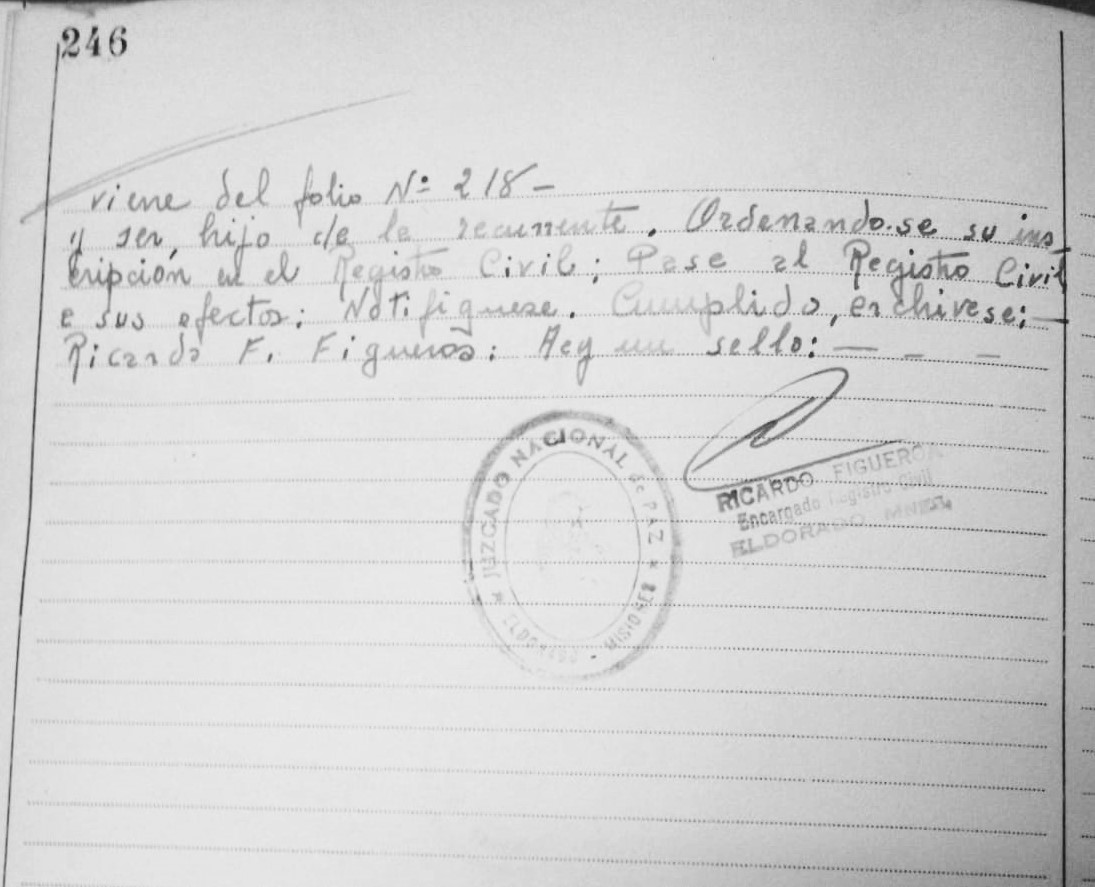 246
viene del folio Nº 218 -
y ser, hijo de la recurrente. Ordenando.se su ins_
cripción en el Registro Civil; Pase al Registro Civil
a sus efectos: Notifiquese. Cumplido, archivese; —
Ricardo F. Figueroa: Hay un sello: — – –
JUZGADO NACIONAL de PAZ * ELDORADO - MISIONES *
RICARDO FIGUEROA
Encargado Registro Civil
ELDORADO MNES.